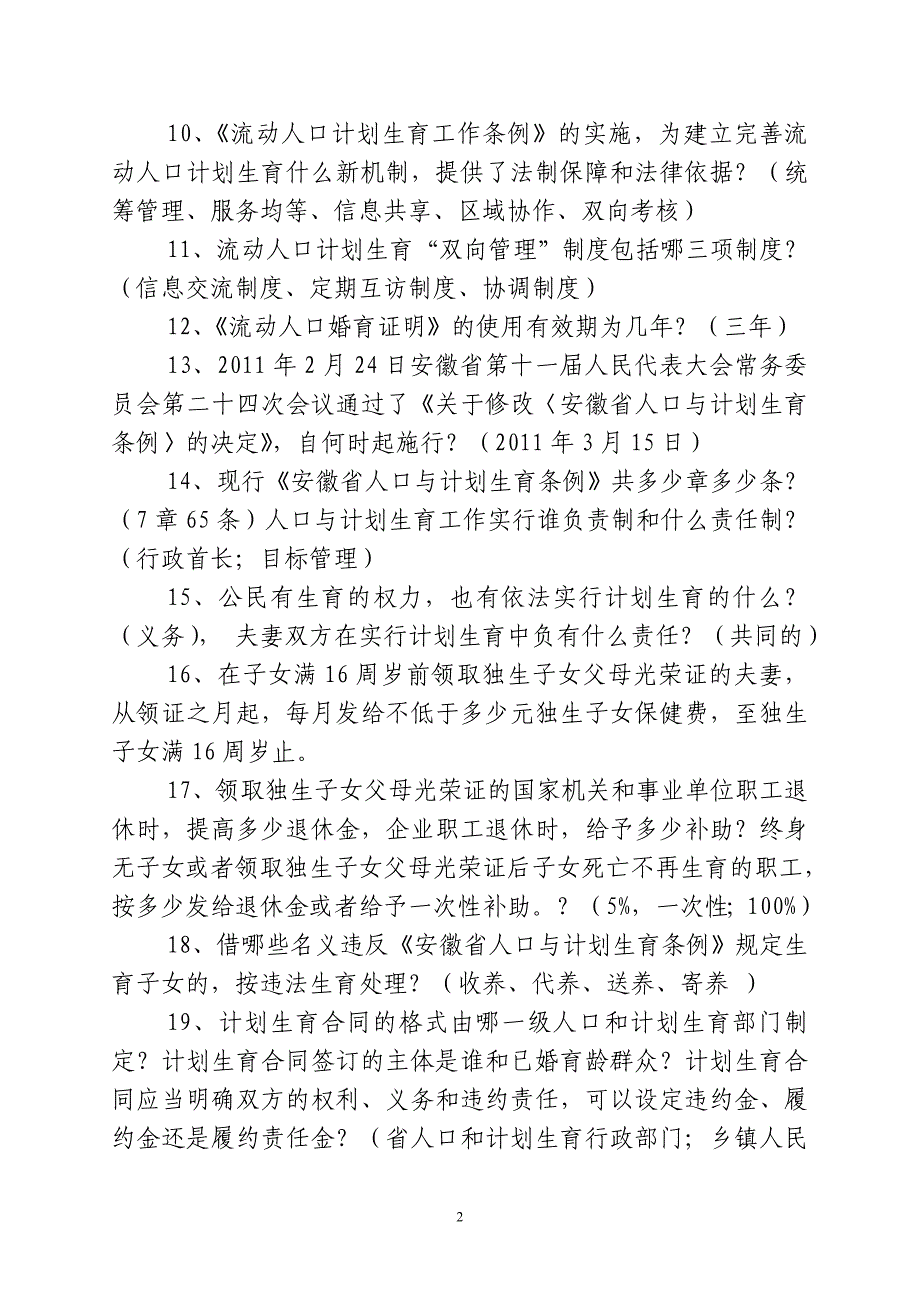 10、《流动人口计划生育工作条例》的实施，为建立完善流
动人口计划生育什么新机制，提供了法制保障和法律依据？（统
筹管理、服务均等、信息共享、区域协作、双向考核）
11、流动人口计划生育“双向管理”制度包括哪三项制度？
（信息交流制度、定期互访制度、协调制度）
12、《流动人口婚育证明》的使用有效期为几年？（三年）
13、2011年2月24日安徽省第十一届人民代表大会常务委
员会第二十四次会议通过了《关于修改〈安徽省人口与计划生育
条例〉的决定》，自何时起施行？（2011年3月15日）
14、现行《安徽省人口与计划生育条例》共多少章多少条？
（7章65条）人口与计划生育工作实行谁负责制和什么责任制？
（行政首长；目标管理）
15、公民有生育的权力，也有依法实行计划生育的什么？
（义务）， 夫妻双方在实行计划生育中负有什么责任？（共同的）
16、在子女满16周岁前领取独生子女父母光荣证的夫妻，
从领证之月起，每月发给不低于多少元独生子女保健费，至独生
子女满16周岁止。
17、领取独生子女父母光荣证的国家机关和事业单位职工退
休时，提高多少退休金，企业职工退休时，给予多少补助？终身
无子女或者领取独生子女父母光荣证后子女死亡不再生育的职工，
按多少发给退休金或者给予一次性补助。？（5%，一次性；100%）
18、借哪些名义违反《安徽省人口与计划生育条例》规定生
育子女的，按违法生育处理？（收养、代养、送养、寄养 ）
19、计划生育合同的格式由哪一级人口和计划生育部门制
定？计划生育合同签订的主体是谁和已婚育龄群众？计划生育合
同应当明确双方的权利、义务和违约责任，可以设定违约金、履
约金还是履约责任金？（省人口和计划生育行政部门；乡镇人民
2